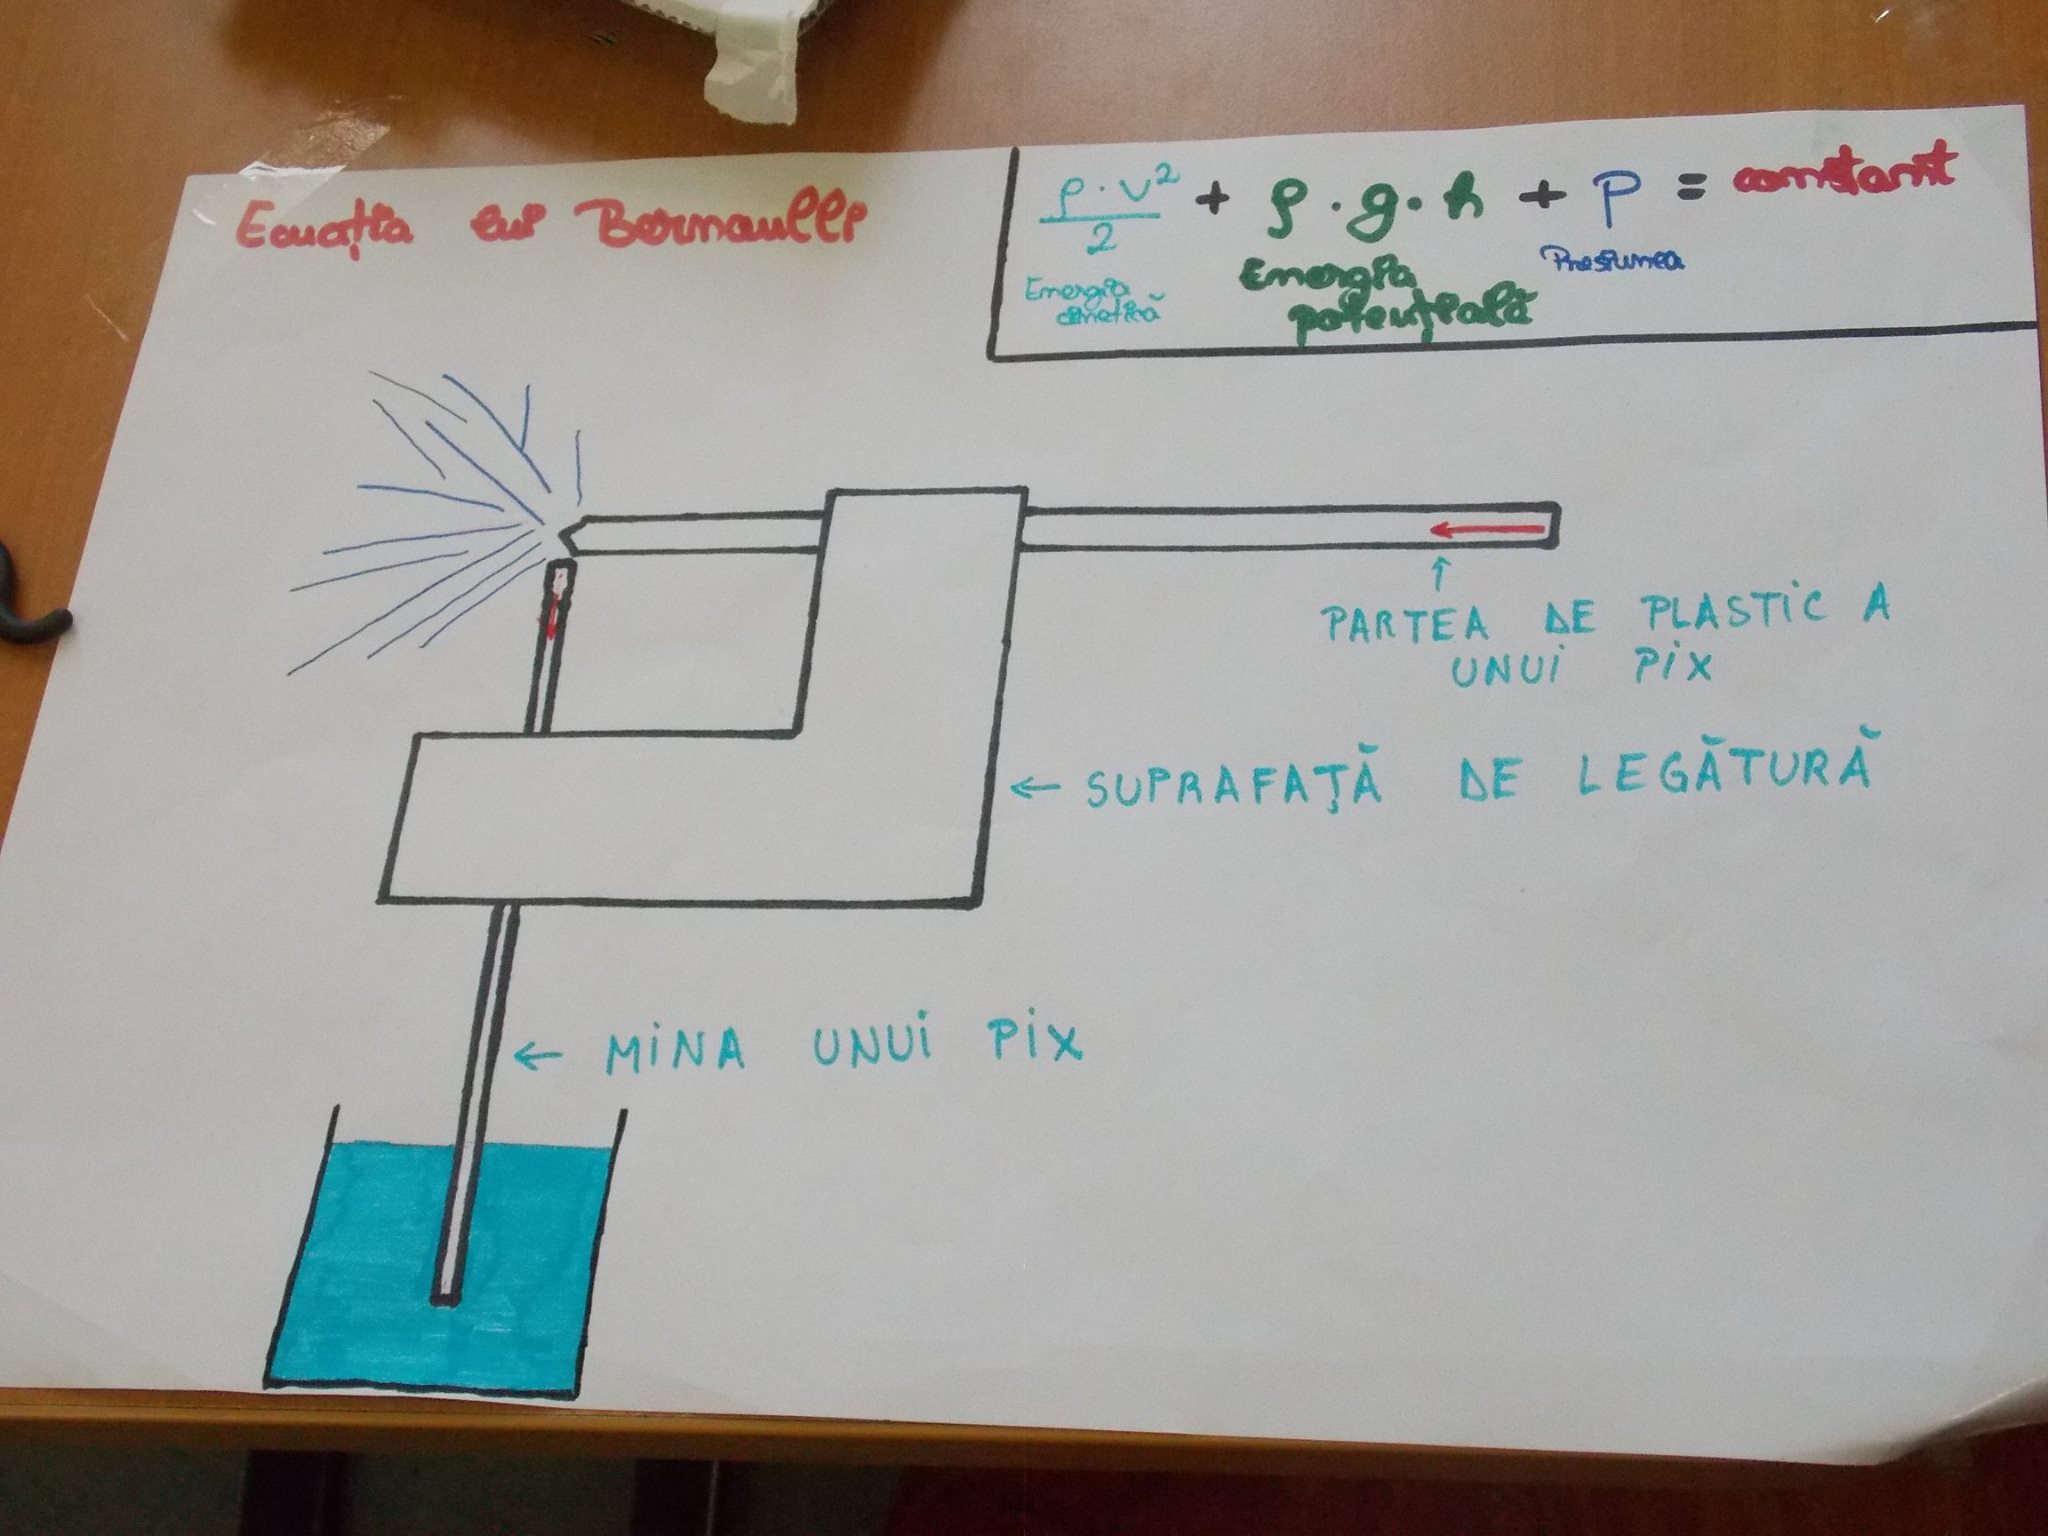 Ecuația lui Bernaulli
ρ·v²/2 + ρ·g·h + P = constant
Energia cinetică
Energia potențială
Presiunea
PARTEA DE PLASTIC A
UNUI PIX
← SUPRAFAȚĂ DE LEGĂTURĂ
← MINA UNUI PIX